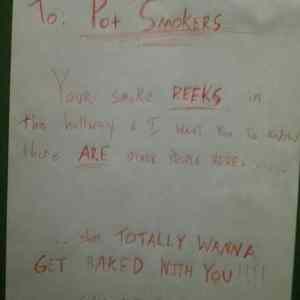 To: Pot Smokers
Your smoke REEKS in
the hallway & I want you to know
there ARE other people here......
... who TOTALLY WANNA
GET BAKED WITH YOU!!!!